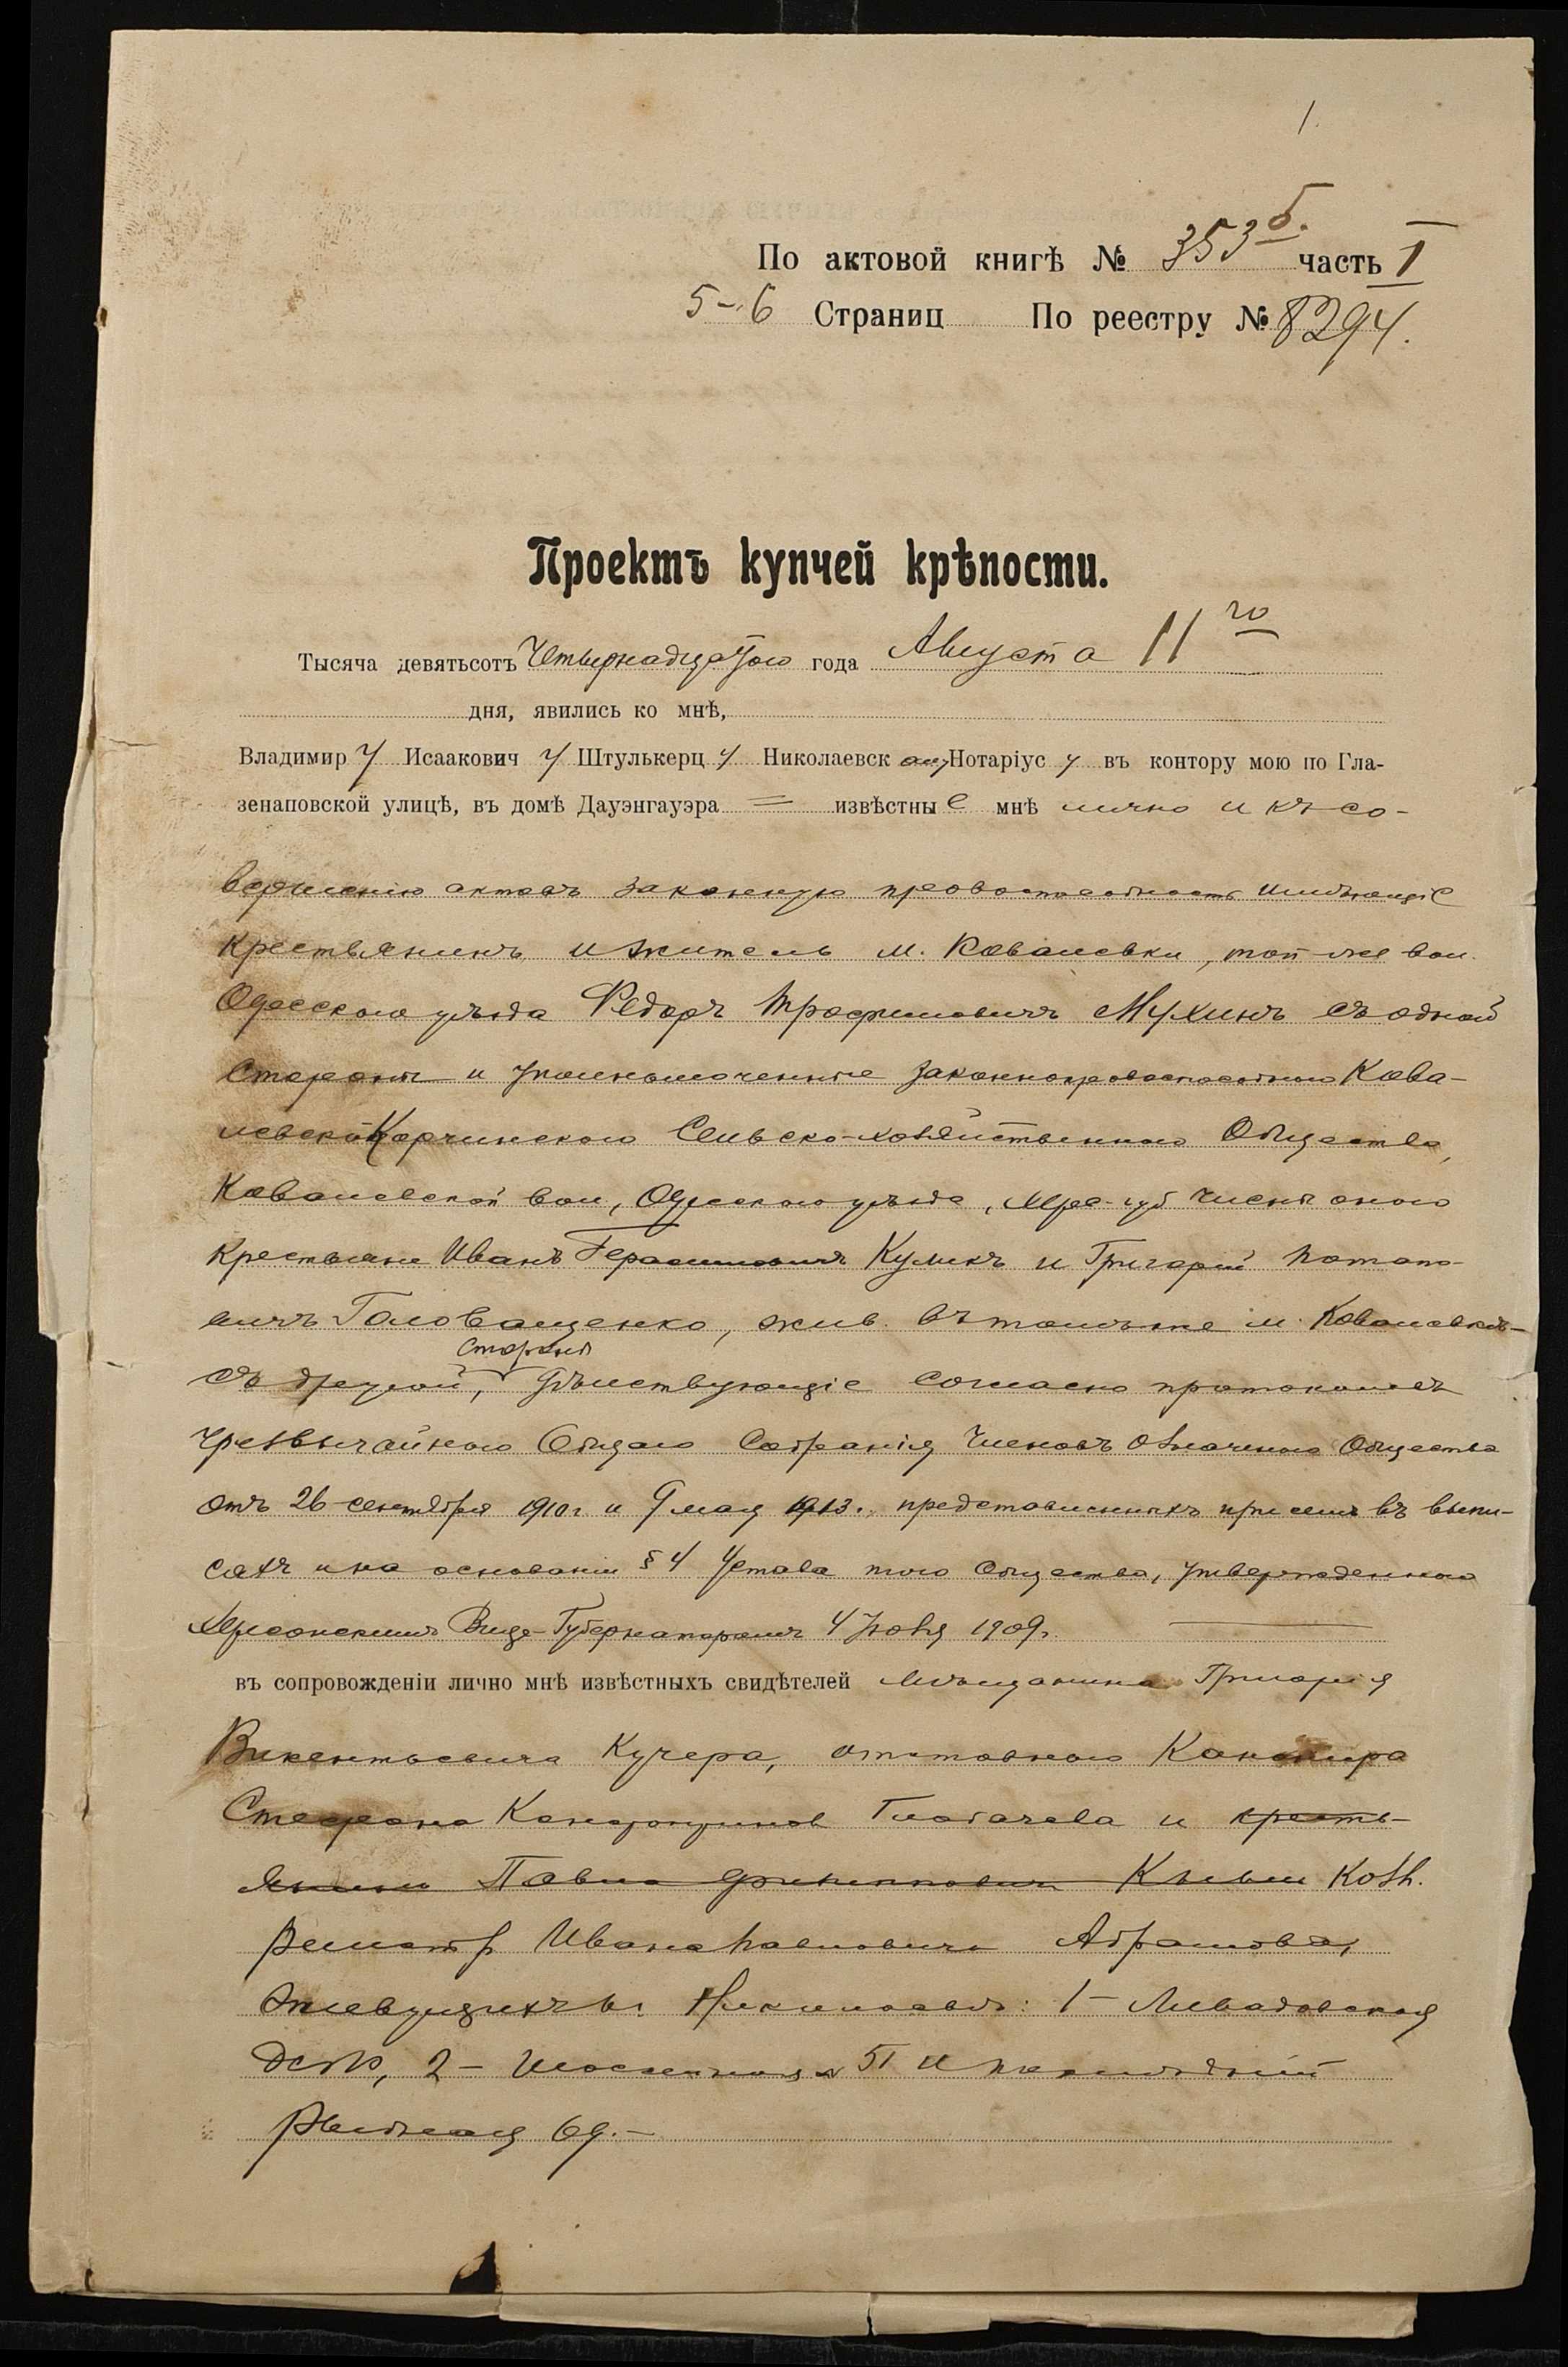 1.
По актовой книгѣ № 353 б. часть I
5-6 Страниц По реестру № 8294.
Проектъ купчей крѣпости.
Тысяча девятьсотъ Четырнадцатого года Августа 11го
дня, явились ко мнѣ,
Владимир у Исаакович у Штулькерц у Николаевск ому Нотаріус у въ контору мою по Гла-
зенаповской улицѣ, въ домѣ Дауэнгауэра = извѣстны е мнѣ лично и къ со-
вершенію актовъ законную правоспособность имѣющіе
крестьянинъ и житель м. Ковалевки, той же вол.
Одесского уѣзда Федоръ Трофимовичъ Мухинъ съ одной
стороны и уполномоченные законноправоспособного Кова-
левско Корчинского Сельско-хозяйственного Общества,
Ковалевской вол, Одесского уѣзда, Херс. губ члены оного
крестьяне Иванъ Герасимовичъ Куликъ и Григорий Потапо-
вичъ Головащенко, жив. въ томъ же м. Ковалевкѣ-
стороны
съ другой, дѣйствующіе согласно протоколамъ
Чрезвычайного Общаго Собранія Членовъ означеного Общества
отъ 26 сентября 1910 г. и 9 мая 1913. представленныхъ при семъ въ выпи-
сяхъ и на основаніи § 4 Устава того Общества, утвержденного
Херсонскимъ Вице-Губернаторомъ 4 Іюня 1909 г.
въ сопровожденіи лично мнѣ извѣстныхъ свидѣтелей мѣщанина Григорія
Викентьевича Кучера, отставного Канонира
Стефана Глобачева и кресть-
янина Павла Филипповича Колл.
Регистр Ивана Павловича Абрамова,
живущихъ въ г. Николаевѣ: 1- Ливадовская
дом, 2- 51 и послѣдній
Рыбная 69.-